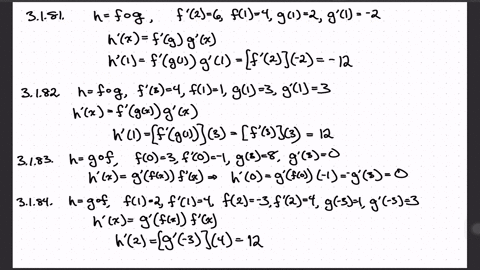 3.1.81. h=f∘g, f'(2)=6, f(1)=4, g(1)=2, g'(1)=-2
h'(x)=f'(g)g'(x)
h'(1)=f'(g(1))g'(1)=[f'(2)](-2)=-12
3.1.82 h=f∘g, f'(3)=4, f(1)=1, g(1)=3, g'(1)=3
h'(x)=f'(g(x))g'(x)
h'(1)=[f'(g(1))](3)=[f'(3)](3)=12
3.1.83. h=g∘f, f(0)=3, f'(0)=-1, g(3)=8, g'(3)=0
h'(x)=g'(f(x))f'(x) ⇒ h'(0)=g'(f(0))(-1)=-g'(3)=0
3.1.84. h=g∘f, f(1)=2, f'(1)=4, f(2)=-3, f'(2)=4, g(-3)=1, g'(-3)=3
h'(x)=g'(f(x))f'(x)
h'(2)=[g'(-3)](4)=12